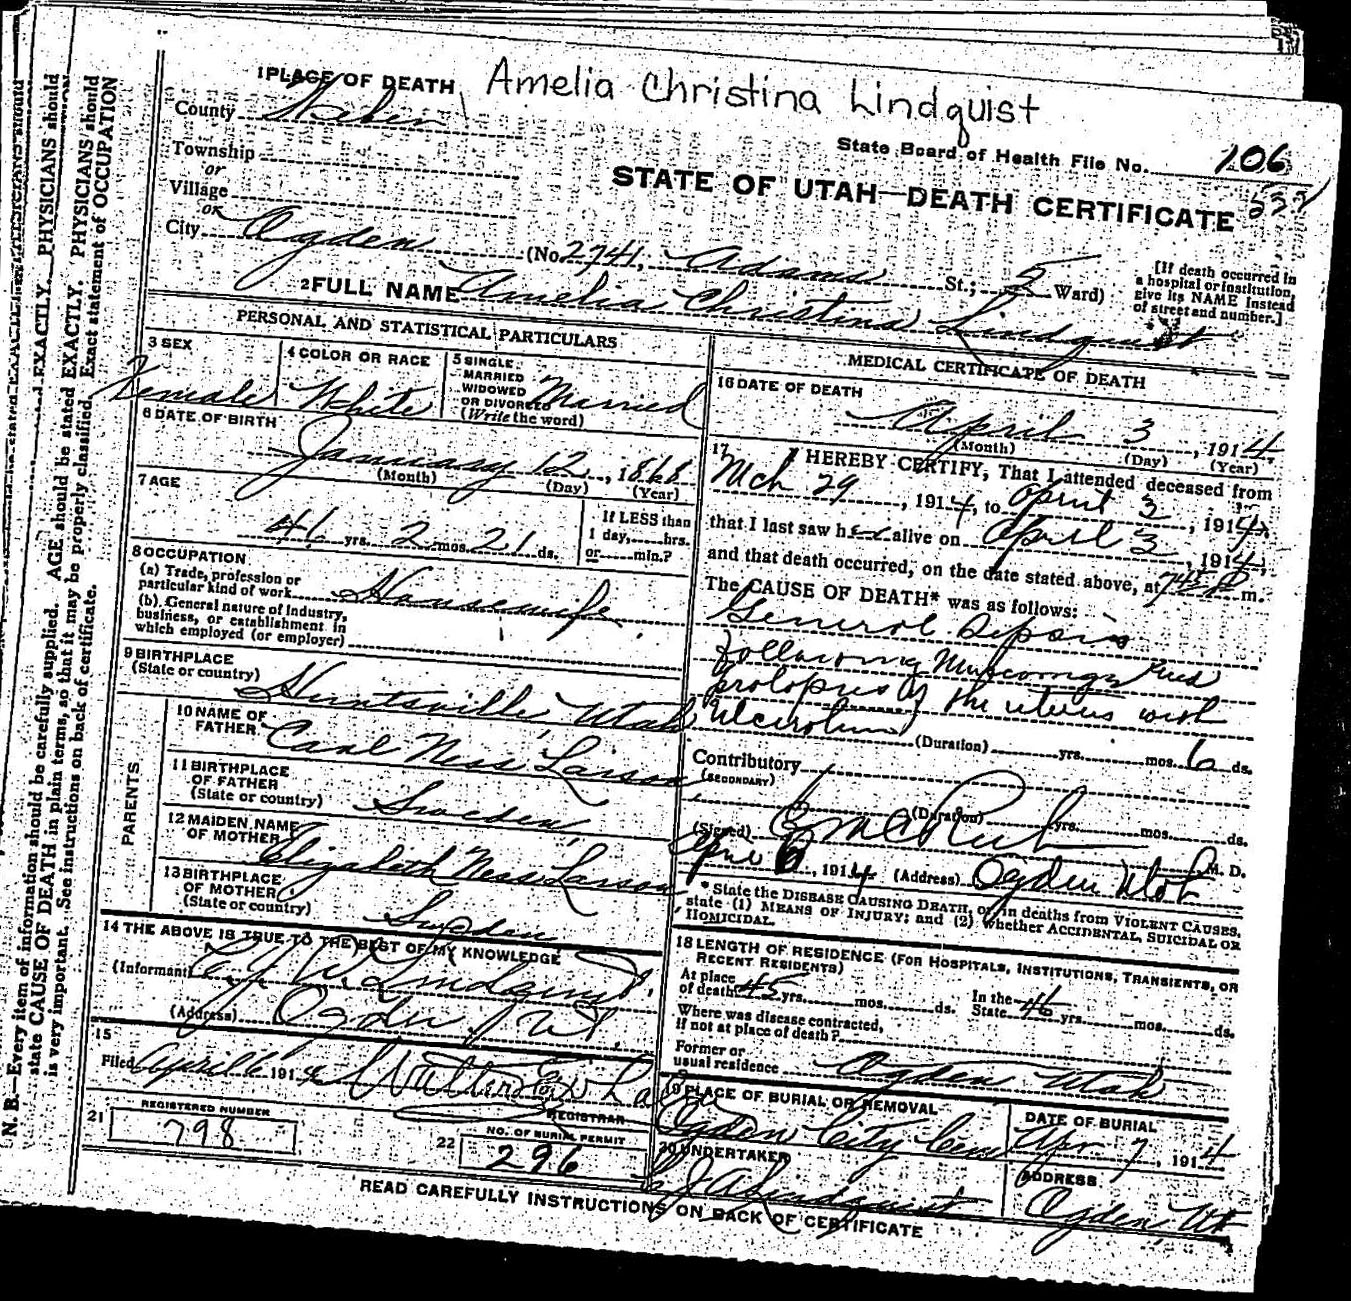 1 PLACE OF DEATH Amelia Christina Lindquist
County Weber
State Board of Health File No. 106
Township
or
Village
or
STATE OF UTAH—DEATH CERTIFICATE
City Ogden (No. 2741, Adams St.; 5 Ward)
[If death occurred in a hospital or institution, give its NAME instead of street and number.]
2 FULL NAME Amelia Christina Lindquist
PERSONAL AND STATISTICAL PARTICULARS
3 SEX
Female
4 COLOR OR RACE
White
5 SINGLE
MARRIED
WIDOWED
OR DIVORCED
(Write the word)
Married
6 DATE OF BIRTH
January 12, 1868
(Month) (Day) (Year)
7 AGE
46 yrs. 2 mos. 21 ds.
If LESS than
1 day, hrs.
or min.?
8 OCCUPATION
(a) Trade, profession or
particular kind of work Housewife
(b) General nature of industry,
business, or establishment in
which employed (or employer)
9 BIRTHPLACE
(State or country)
Huntsville, Utah
PARENTS
10 NAME OF
FATHER
Carl Ness Larson
11 BIRTHPLACE
OF FATHER
(State or country)
Sweden
12 MAIDEN NAME
OF MOTHER
Elizabeth Ness Larson
13 BIRTHPLACE
OF MOTHER
(State or country)
Sweden
14 THE ABOVE IS TRUE TO THE BEST OF MY KNOWLEDGE
(Informant) Lindquist
(Address) Ogden, Ut.
15
Filed April 6, 1914 Walter
REGISTRAR
21 REGISTERED NUMBER
798
22 NO. OF BURIAL PERMIT
296
MEDICAL CERTIFICATE OF DEATH
16 DATE OF DEATH
April 3, 1914
(Month) (Day) (Year)
17 I HEREBY CERTIFY, That I attended deceased from
Mch 29, 1914, to April 3, 1914,
that I last saw her alive on April 3, 1914,
and that death occurred, on the date stated above, at 745 P m.
The CAUSE OF DEATH* was as follows:
General Sepsis
following
prolapsus of the uterus with
(Duration) yrs. mos. 6 ds.
Contributory
(SECONDARY)
(Duration) yrs. mos. ds.
(Signed) M. D.
1914 (Address) Ogden Utah
* State the DISEASE CAUSING DEATH, or, in deaths from VIOLENT CAUSES, state (1) MEANS OF INJURY; and (2) whether ACCIDENTAL, SUICIDAL OR HOMICIDAL.
18 LENGTH OF RESIDENCE (FOR HOSPITALS, INSTITUTIONS, TRANSIENTS, OR RECENT RESIDENTS)
At place
of death 45 yrs. mos. ds.
In the
State 46 yrs. mos. ds.
Where was disease contracted,
if not at place of death?
Former or
usual residence Ogden Utah
19 PLACE OF BURIAL OR REMOVAL
Ogden City Cem
DATE OF BURIAL
Apr. 7, 1914
20 UNDERTAKER
Lindquist
ADDRESS
Ogden, Ut
READ CAREFULLY INSTRUCTIONS ON BACK OF CERTIFICATE
N. B.—Every item of information should be carefully supplied. AGE should be stated EXACTLY. PHYSICIANS should
state CAUSE OF DEATH in plain terms, so that it may be properly classified. Exact statement of OCCUPATION
is very important. See instructions on back of certificate.